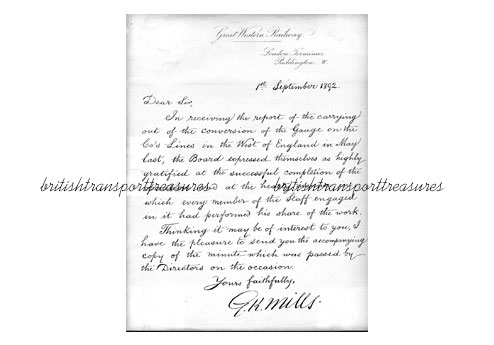 Great Western Railway.
London Terminus
Paddington, W.
1st September 1892.
Dear Sir,
In receiving the report of the carrying
out of the conversion of the Gauge on the
Co's Lines in the West of England in May
last, the Board expressed themselves as highly
gratified at the successful completion of the
and at the
britishtransporttreasures britishtransporttreasures
which every member of the Staff engaged
in it had performed his share of the work.
Thinking it may be of interest to you, I
have the pleasure to send you the accompanying
copy of the minute which was passed by
the Directors on the occasion.
Yours faithfully,
G.K. Mills.